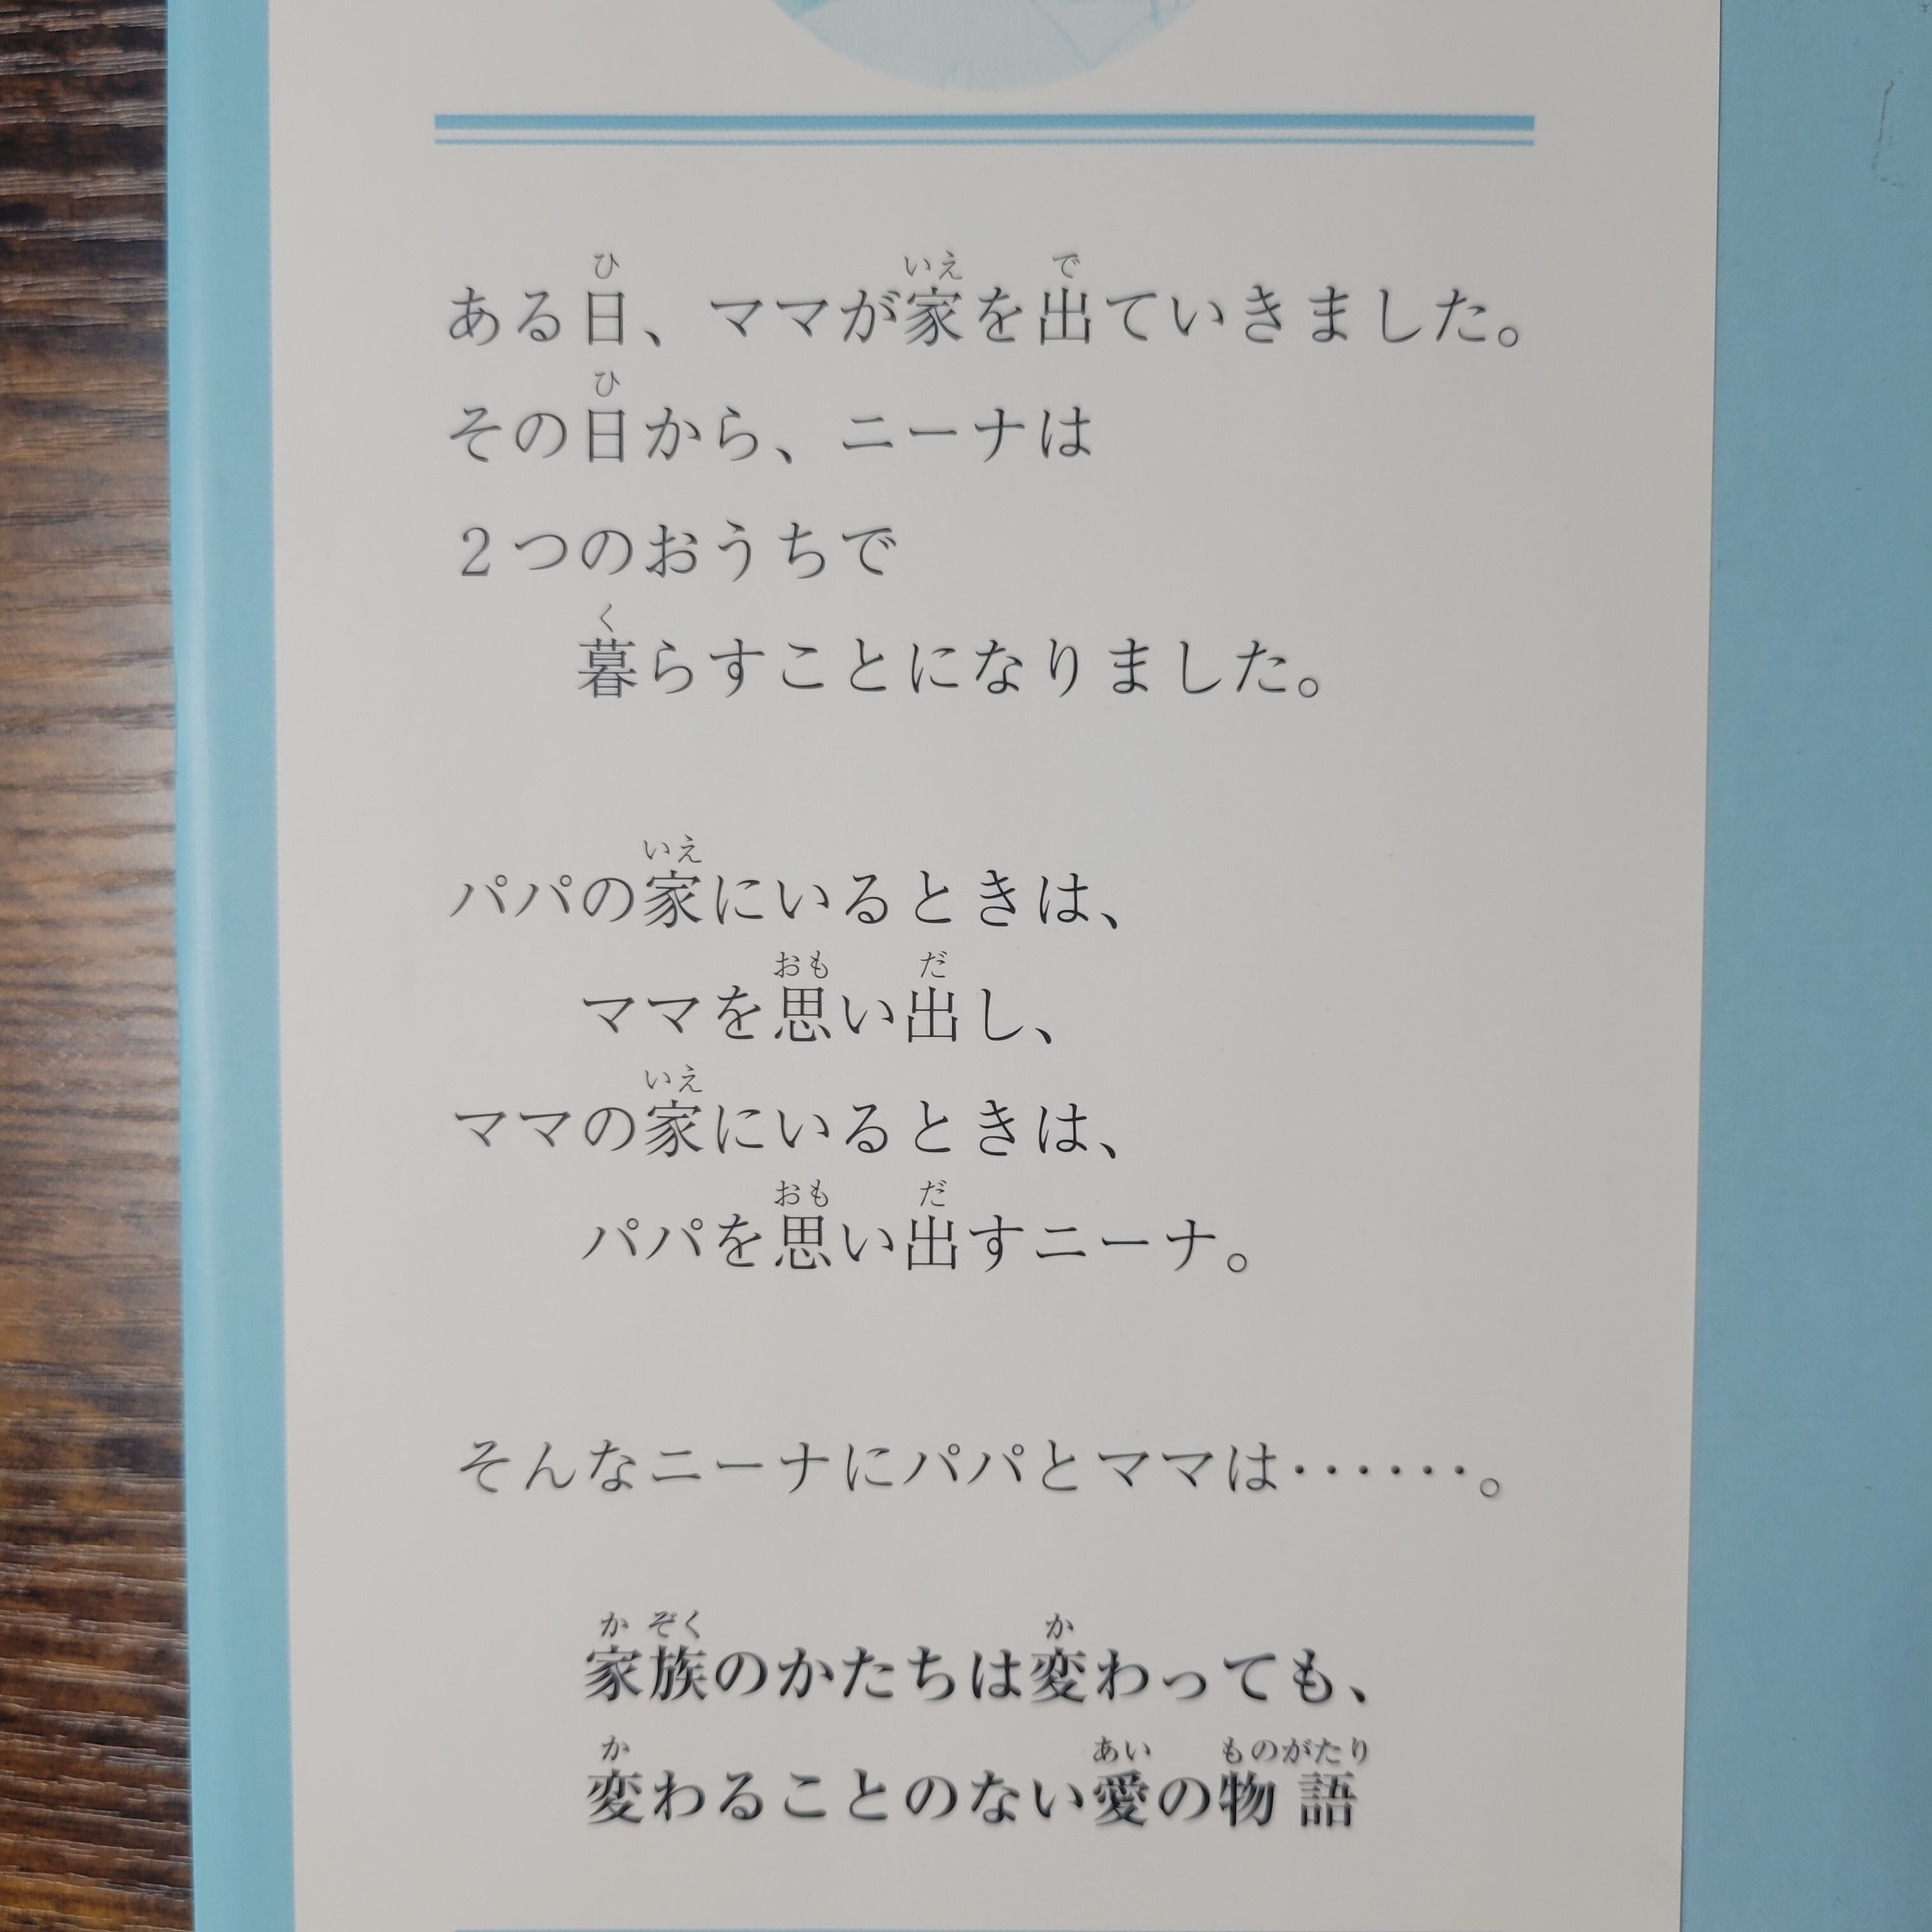 ある日、ママが家を出ていきました。
その日から、ニーナは
２つのおうちで
暮らすことになりました。
パパの家にいるときは、
ママを思い出し、
ママの家にいるときは、
パパを思い出すニーナ。
そんなニーナにパパとママは……。
家族のかたちは変わっても、
変わることのない愛の物語